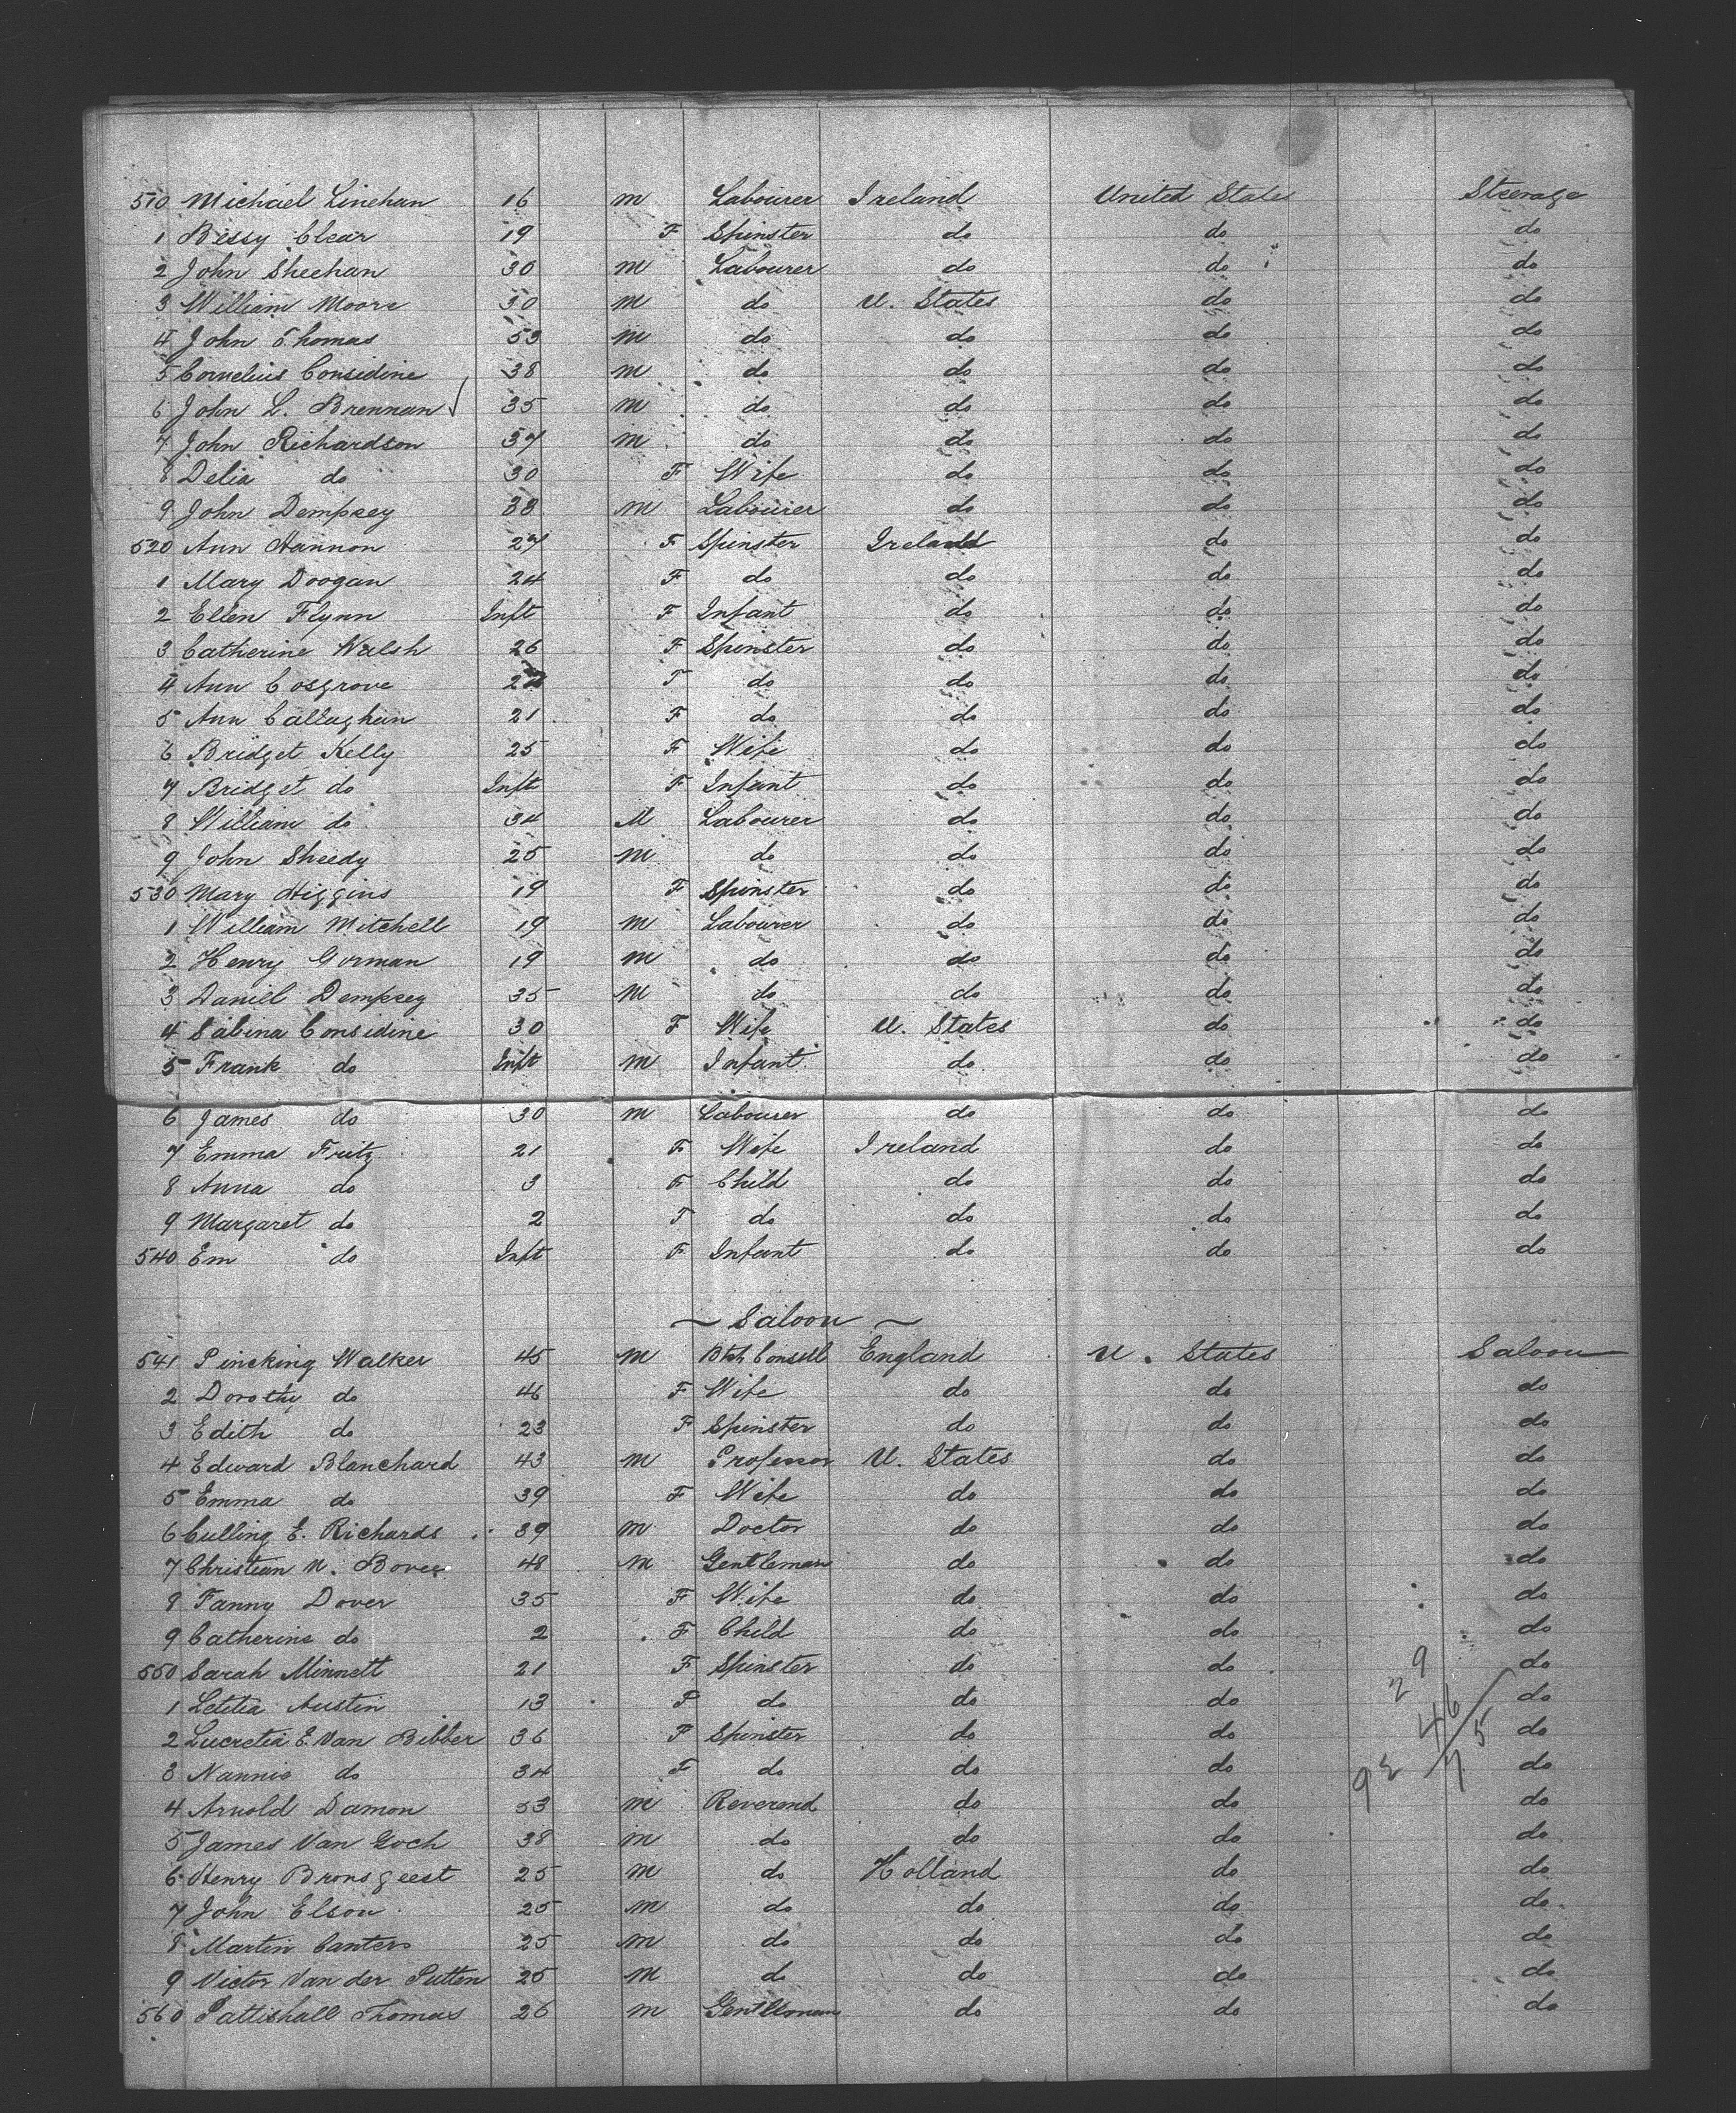 510 Michael Linehan 16 m Labourer Ireland United States Steerage
1 Bessy Clear 19 F Spinster do do do
2 John Sheehan 30 m Labourer do do do
3 William Moore 30 m do U. States do do
4 John Thomas 53 m do do do do
5 Cornelius Considine 38 m do do do do
6 John L. Brennan 35 m do do do do
7 John Richardson 37 m do do do do
8 Delia do 30 F Wife do do do
9 John Dempsey 38 m Labourer do do do
520 Ann Hannon 27 F Spinster Ireland do do
1 Mary Doogan 24 F do do do do
2 Ellen Flynn Inft F Infant do do do
3 Catherine Walsh 26 F Spinster do do do
4 Ann Cosgrove F do do do do
5 Ann Callaghan 21 F do do do do
6 Bridget Kelly 25 F Wife do do do
7 Bridget do Inft F Infant do do do
8 William do 34 M Labourer do do do
9 John Sheedy 25 m do do do do
530 Mary Higgins 19 F Spinster do do do
1 William Mitchell 19 m Labourer do do do
2 Henry Gorman 19 m do do do do
3 Daniel Dempsey 35 m do do do do
4 Sabina Considine 30 F Wife U. States do do
5 Frank do Inft m Infant do do do
6 James do 30 m Labourer do do do
7 Emma Fritz 21 F Wife Ireland do do
8 Anna do 3 F Child do do do
9 Margaret do 2 F do do do do
540 Em do Inft F Infant do do do
~ Saloon ~
541 Pincking Walker 45 m Btsh Consell England U. States Saloon
2 Dorothy do 46 F Wife do do do
3 Edith do 23 F Spinster do do do
4 Edward Blanchard 43 m Professor U. States do do
5 Emma do 39 F Wife do do do
6 Culling E. Richards 39 m Doctor do do do
7 Christian N. Bovee 48 m Gentleman do do do
8 Fanny Dover 35 F Wife do do do
9 Catherine do 2 F Child do do do
550 Sarah Minnett 21 F Spinster do do do
1 Letitia Austin 13 F do do do do
2 Lucretia E. Van Bibber 36 F Spinster do do do
3 Nannie do 34 F do do do do
4 Arnold Damon 53 m Reverend do do do
5 James Van Goch 38 m do do do do
6 Henry Bronsgeest 25 m do Holland do do
7 John Elsou 25 m do do do do
8 Martin Canters 25 m do do do do
9 Victor Van der Putten 25 m do do do do
560 Pattishall Thomas 26 m Gentleman do do do
29
46
75